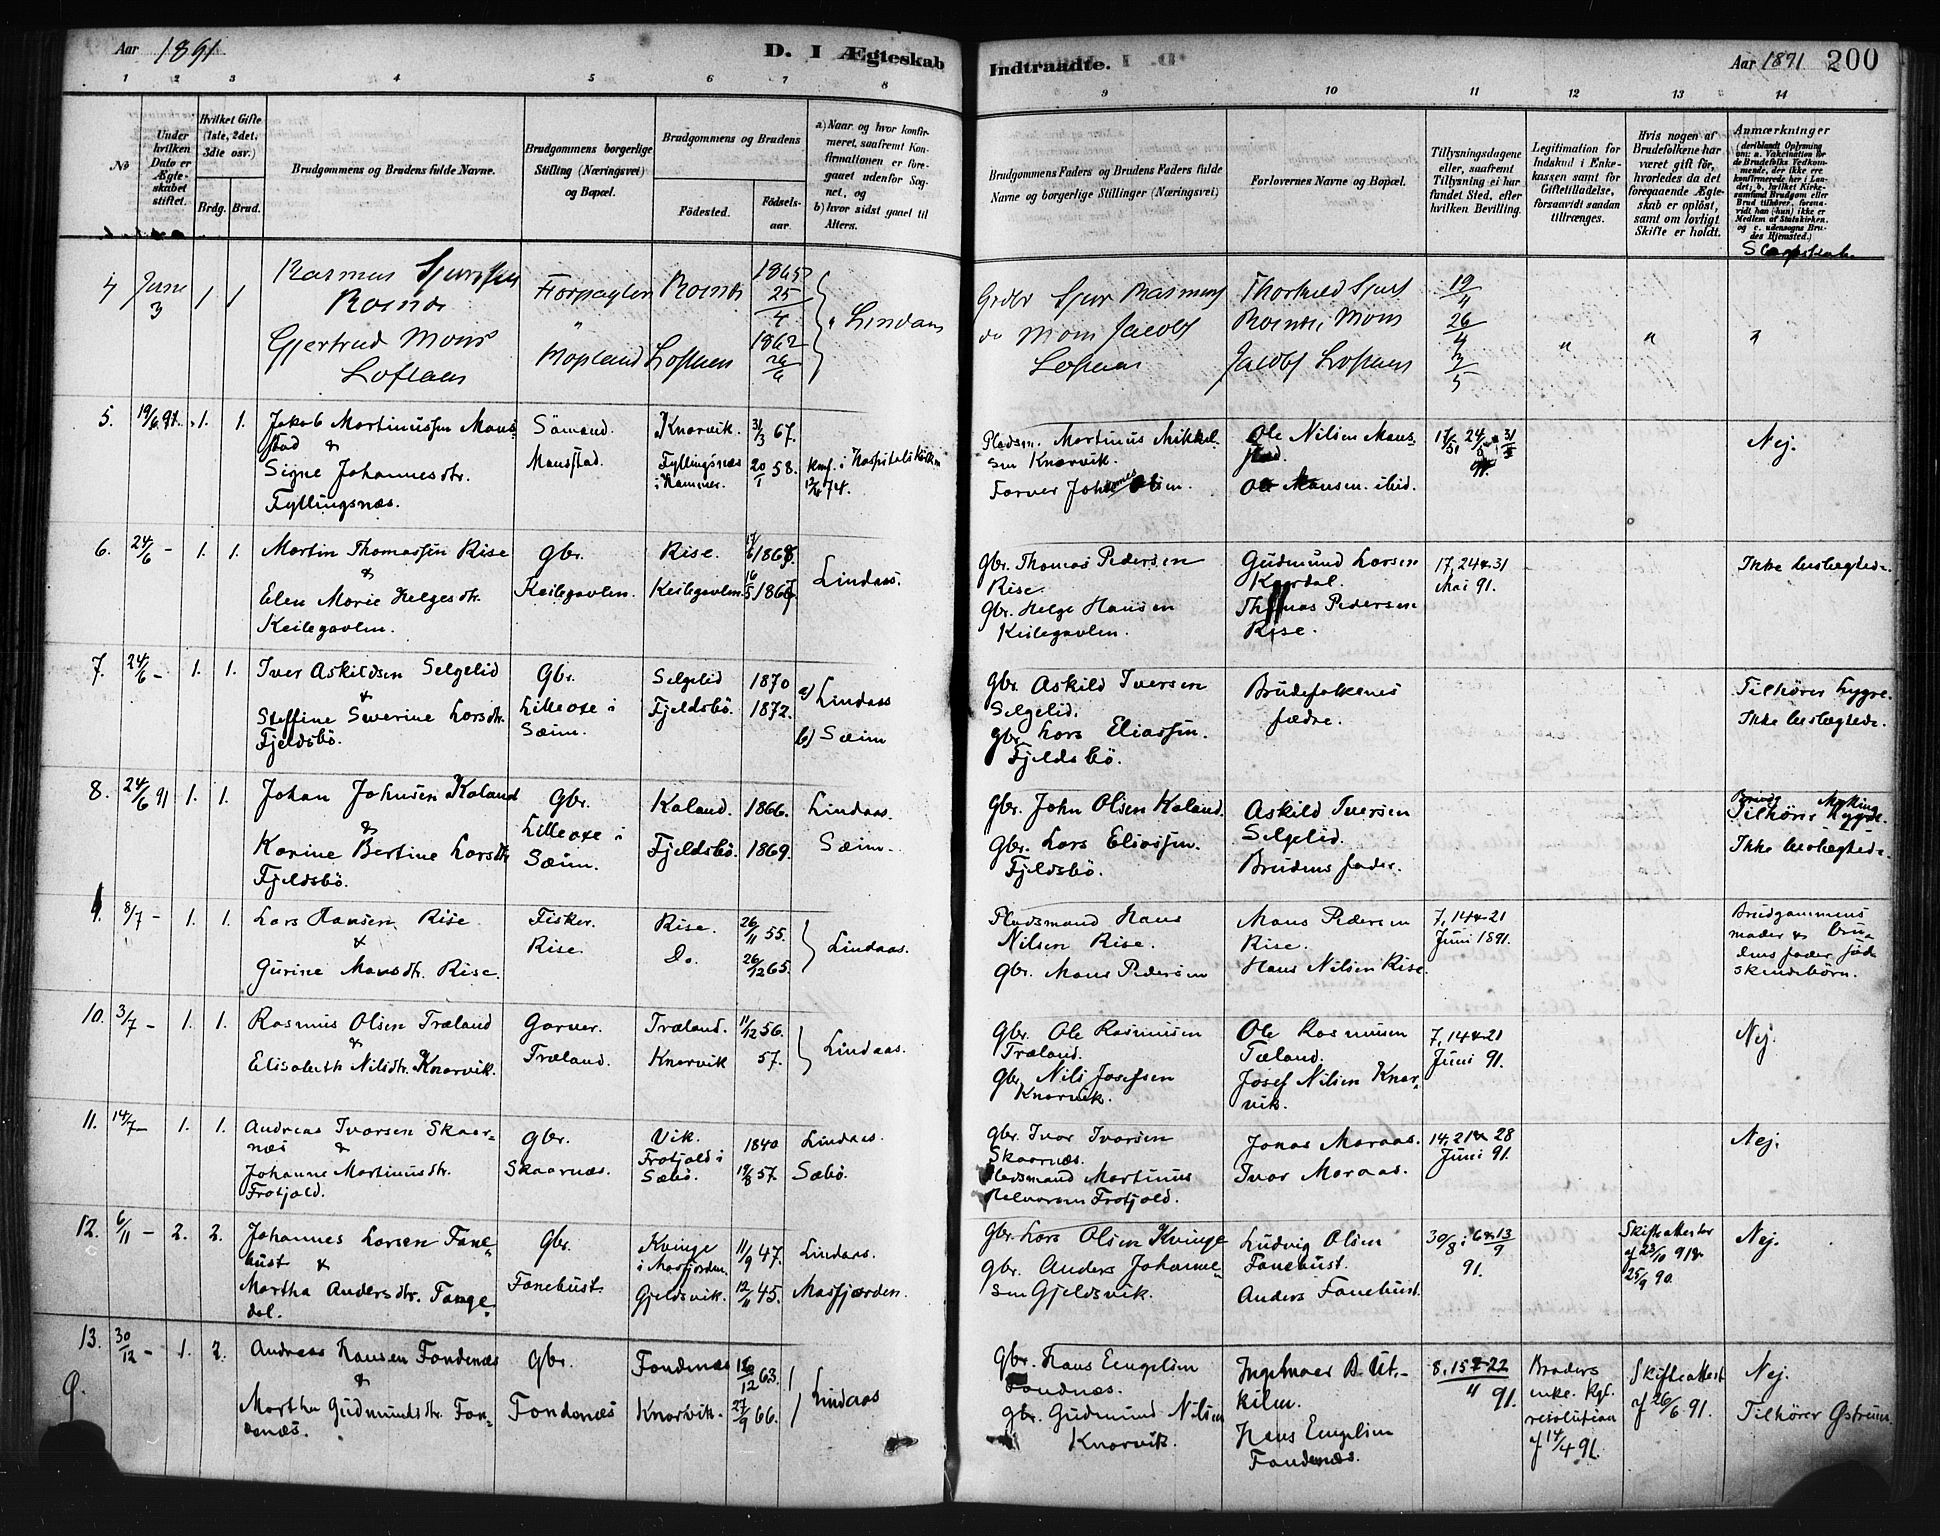 Aar 1891
D. I Ægteskab
Indtraadte.
Aar 1891 200
1 2 3 4 5 6 7 8
9 10 11 12 13 14
No
Under hvilken Dato er Ægteskabet stiftet.
Hvilket Gifte (1ste, 2det, 3die osv.)
Brdg. Brud.
Brudgommens og Brudens fulde Navne.
Brudgommens borgerlige Stilling (Næringsvei) og Bopæl.
Brudgommens og Brudens
Födested.
Födsels-aar.
a) Naar og hvor konfirmeret, saafremt Konfirmationen er foregaaet udenfor Sognet, og
b) hvor sidst gaaet til Alters.
Brudgommens Faders og Brudens Faders fulde Navne og borgerlige Stillinger (Næringsvei)
Forlovernes Navne og Bopæl.
Tillysningsdagene eller, saafremt Tillysning ei har fundet Sted, efter hvilken Bevilling.
Legitimation for Indskud i Enkekassen samt for Giftetilladelse, forsaavidt saadan tiltrænges.
Hvis nogen af Brudefolkene har været gift för, hvorledes da det foregaaende Ægteskab er oplöst, samt om lovligt Skifte er holdt.
Anmærkninger
4 Juni 3 1 1
Rasmus
Gjertrud Mons
Loftaas
Hopland
1865 25/4
1862
Lindaas
Rasmus
Mons Jacobs
19/4
26/4
3/5
5. 19/6 91. 1. 1.
Jakob Martinussen Mons-
stad &
Signe Johannesdtr.
Fyllingsnæs.
Sömand.
Monsstad.
Knarvik.
Fyllingsnæs
i Hammer.
31/3 67.
20/1 58.
Konf. i Hospitalskirken
12/4 74.
Pladsm. Martinus Mikkel-
sen Knarvik.
Garver Johannes Olsen.
Ole Nilsen Mons-
stad.
Ole Monsen ibid.
17/5 24/5 & 31/5
91.
Nej.
6. 24/6 - 1. 1.
Martin Thomassen Rise
&
Elen Marie Helgesdtr.
Keilegavlen.
Gbr.
Keilegavlen.
Rise.
Keilegavlen.
Lindaas.
Gbr. Thomas Pedersen
Rise.
Gbr. Helge Hansen
Keilegavlen.
Gudmund Larsen
Thomas Pedersen
Rise.
17, 24 & 31
Mai 91.
Ikke beslægtede.
7. 24/6 - 1. 1.
Iver Askildsen Selgelid
&
Steffine Severine Larsdtr.
Fjeldsbö.
Gbr.
Lilleoxe i
Sæim.
Selgelid
Fjeldsbö.
1870
1872.
a) Lindaas
b) Sæim
Gbr. Askild Iversen
Selgelid.
Gbr. Lars Eliassen.
Fjeldsbö.
Brudefolkenes
fædre.
Tilhører Lygre.
Ikke beslægtede.
8. 24/6 91 1. 1.
Johan Johnsen Kaland
&
Karine Bertine Larsdtr.
Fjeldsbö.
Gbr.
Lilleoxe i
Sæim.
Kaland.
Fjeldsbö.
1866.
1869.
Lindaas.
Sæim.
Gbr. John Olsen Kaland.
Gbr. Lars Eliassen.
Fjeldsbö.
Askild Iversen
Selgelid.
Brudens fader.
Tilhører Lygre.
Ikke beslægtede.
9. 8/7 - 1. 1.
Lars Hansen Rise
&
Gurine Monsdtr. Rise.
Fisker.
Rise.
Rise.
Do.
26/11 55.
26/12 65.
Lindaas.
Pladsmand Hans
Nilsen Rise.
Gbr. Mons Pedersen
Mons Pedersen
Rise.
Hans Nilsen Rise.
7, 14 & 21
Juni 1891.
Brudgommens
moder & bru-
dens fader
skendebörn.
10. 3/7 - 1. 1.
Rasmus Olsen Træland
&
Elisabeth Nilsdtr. Knarvik.
Garver.
Træland.
Træland.
Knarvik
11/12 56.
57.
Lindaas.
Gbr. Ole Rasmussen
Træland.
Gbr. Nils Josefsen
Knarvik.
Ole Rasmussen
Tæland.
Josef Nilsen Knar-
vik.
7, 14 & 21
Juni 91.
Nej.
11. 14/7 - 1. 1.
Andreas Ivarsen Skaar-
næs &
Johanne Martinusdtr.
Frotjold.
Gbr.
Skaarnæs.
Vik.
Frotjold i
Sæbö.
1840
19/8 57.
Lindaas.
Sæbö.
Gbr. Ivar Ivarsen
Skaarnæs.
Pladsmand Martinus
Halvorsen Frotjold.
Jonas Maraas.
Ivar Maraas.
14, 21 & 28
Juni 91.
Nej.
12. 6/11 - 2. 2.
Johannes Larsen Fane-
bust &
Martha Andersdtr. Fange-
dal.
Gbr.
Fanebust
Kvinge
i Masfjorden.
Gjeldsvik.
11/9 47.
12/11 45.
Lindaas.
Masfjorden.
Gbr. Lars Olsen Kvinge
Gbr. Anders Johanne-
sen Gjeldsvik.
Ludvig Olsen
Fanebust.
Anders Fanebust.
30/8, 6 & 13/9
91.
Skifteattester
af 23/10 91 &
25/9 90.
Nej.
13. 30/12 - 1. 2.
Andreas Hansen Fondenæs
&
Martha Gudmundsdtr. Fon-
denæs.
Gbr.
Fondenæs
Fondenæs
Knarvik.
27/9 66.
Lindaas
Gbr. Hans Engelsen
Fondnæs.
Gbr. Gudmund Nilsen
Knarvik.
Ingelmaer B. Ut-
kilen.
Hans Engelsen
Fondenæs.
8, 15 & 22
91.
Broders
enke. Kgl.
resolution
af 14/4 91.
Skifteattest
af 26/6 91.
Nej.
Tilhører Østrem.